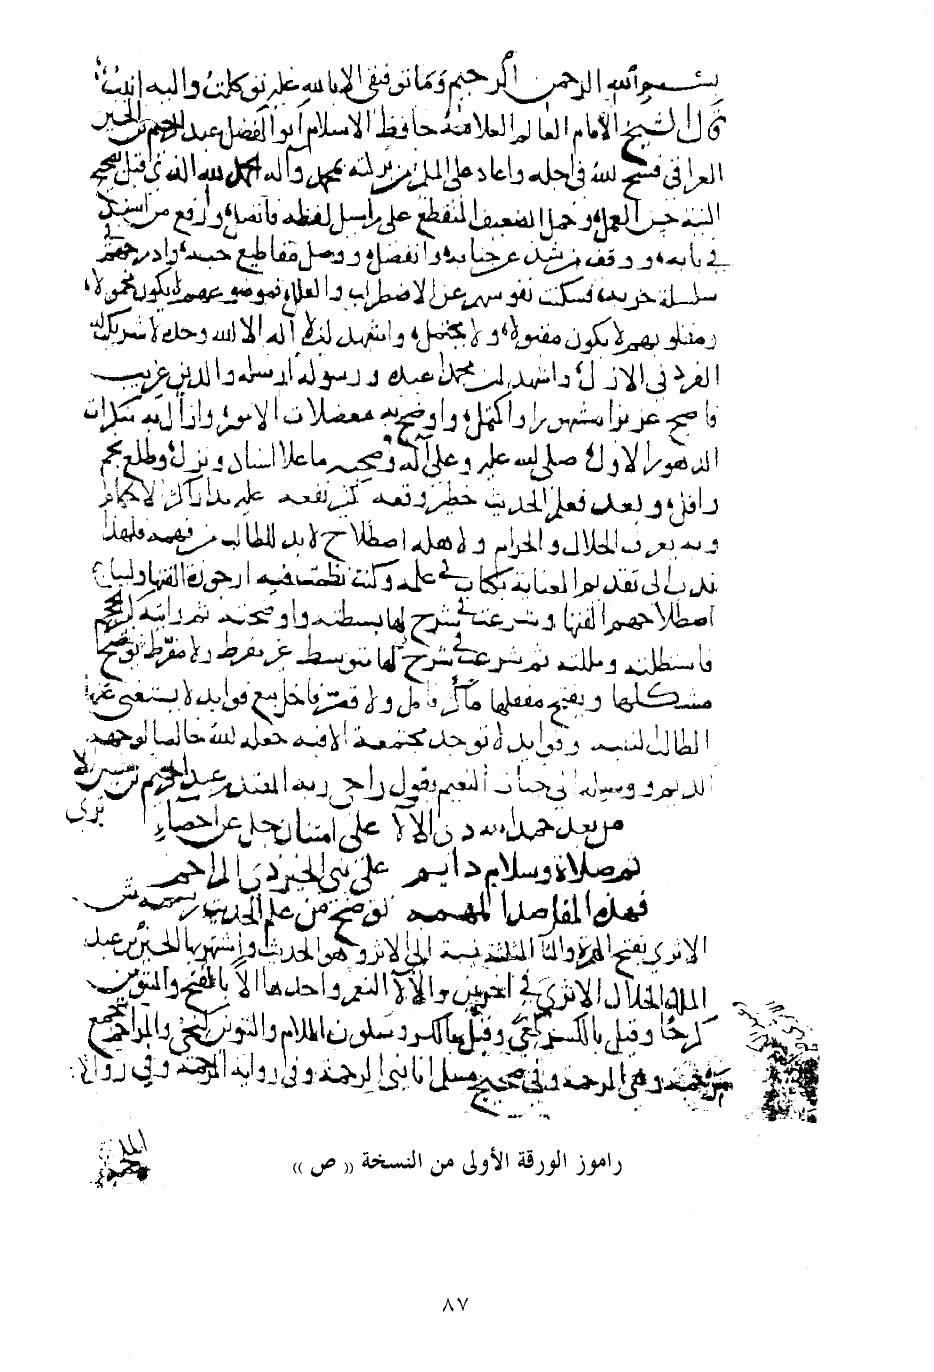 بسم الله الرحمن الرحيم وما توفيقي الا بالله عليه توكلت واليه انيب
قال الشيخ الامام العالم العلامة حافظ الاسلام ابو الفضل عبد الرحيم بن الحسين
العراقي فسح الله في اجله واعاد على المسلمين من بركته بمحمد وآله الحمد لله الذي قبل بصحيح
النية حسن العمل وحمل الضعيف المنقطع على مراسيل لطفه فاتصل ورفع من اسند
في بابه ووقف من شذ عن جنابه وانفصل ووصل مقاطيع حبه وادرجهم في
سلسلة حزبه فسكنت نفوسهم عن الاضطراب والعلل فموضوعهم لا يكون محمولا
ومقلوبهم لا يكون مقبولا ولا يحتمل واشهد ان لا اله الا الله وحده لا شريك له
الفرد في الازل واشهد ان محمدا عبده ورسوله ارسله والدين غريب
فاصبح عزيزا مشهورا واكتمل واوضح به معضلات الامور وازال به منكرات
الدهور الاول صلى الله عليه وعلى آله وصحبه ما علا اسناد ونزل وطلع نجم
وافل وبعد فعلم الحديث خطير وقعه كثير نفعه عليه مدار اكثر الاحكام
وبه يعرف الحلال والحرام ولاهله اصطلاح لا بد للطالب من فهمه فلهذا
ندب الى تقديم العناية بكتاب في علمه وكنت نظمت فيه ارجوزة الفتها ولبيان
اصطلاحهم الفتها وشرعت في شرح لها بسطته واوضحته ثم رايته كبير الحجم
فاستطلته ومللته ثم شرعت في شرح لها متوسط غير مفرط ولا مفرط يوضح
مشكلها ويفتح مقفلها ما كثر فامل ولا قصر فاخل مع فوايد لا يستغنى عنها
الطالب النبيه وفوايد لا توجد مجتمعة الا فيه جعله الله خالصا لوجهه
الكريم ووسيلة الى جنات النعيم يقول راجي ربه المقتدر عبد الرحيم بن الحسين الا
ثري
من بعد حمد الله ذي الآلاء على امتنان جل عن احصاء
ثم صلاة وسلام دايم على نبي الخير ذي المراحم
فهذه المقاصد المهمه توضح من علم الحديث رسمه
الاثري بفتح الهمزة والثاء المثلثة نسبة الى الاثر وهو الحديث واشتهر بها الحسين بن عبد
الملك الخلال الاثري في آخرين والآلاء النعم واحدها الا بالفتح والتنوين
كرحا وقيل بالكسر كمعى وقيل بالكسر وسكون اللام والتنوين كنحي والمراحم جمع
مرحمة وهي الرحمة وفي صحيح مسلم انا نبي المرحمة وفي رواية الرحمة وفي رواية
راموز الورقة الأولى من النسخة (( ص ))
٨٧